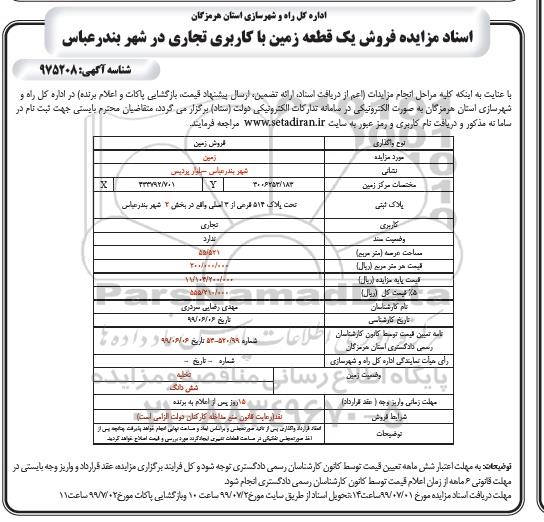 اداره کل راه و شهرسازی استان هرمزگان
اسناد مزایده فروش یک قطعه زمین با کاربری تجاری در شهر بندرعباس
شناسه آگهی: ۹۷۵۲۰۸
با عنایت به اینکه کلیه مراحل انجام مزایدات (اعم از دریافت اسناد، ارائه تضمین، ارسال پیشنهاد قیمت، بازگشایی پاکات و اعلام برنده) در اداره کل راه و
شهرسازی استان هرمزگان به صورت الکترونیکی در سامانه تدارکات الکترونیکی دولت (ستاد) برگزار می گردد، متقاضیان محترم بایستی جهت ثبت نام در
سامانه مذکور و دریافت نام کاربری و رمز عبور به سایت www.setadiran.ir مراجعه فرمایند.
نوع واگذاری فروش زمین
مورد مزایده زمین
نشانی شهر بندرعباس –بلوار پردیس
مختصات مرکز زمین ۳۰۰۶۲۵۳/۱۸۳ Y ۴۳۳۷۹۲/۷۰۱ X
پلاک ثبتی تحت پلاک ۵۱۴ فرعی از ۳ اصلی واقع در بخش ۲ شهر بندرعباس
کاربری تجاری
وضعیت سند ندارد
مساحت عرصه (متر مربع) ۵۵/۵۲۱
قیمت هر متر مربع (ریال) ۲۰۰/۰۰۰/۰۰۰
قیمت پایه مزایده (ریال) ۱۱/۱۰۴/۲۰۰/۰۰۰
۵٪ قیمت کل (ریال) ۵۵۵/۲۱۰/۰۰۰
نام کارشناسان مهدی رضایی سردری
تاریخ کارشناسی تاریخ ۹۹/۰۶/۰۶
نامه تعیین قیمت توسط کانون کارشناسان
رسمی دادگستری استان هرمزگان
شماره ۵۳-۵۲۰/۹۹ تاریخ ۹۹/۰۶/۰۶
رأی هیأت نمایندگی اداره کل راه و شهرسازی شماره – تاریخ –
وضعیت زمین تخلیه
شش دانگ
مهلت زمانی واریز وجه ( عقد قرارداد) ۱۵روز پس از اعلام به برنده
شرایط فروش نقد(رعایت قانون منع مداخله کارکنان دولت الزامی است)
توضیحات
انعقاد قرارداد واگذاری پس از تائید صورتمجلس و براساس ابعاد و مساحت نهایی انجام خواهد پذیرفت چنانچه پس از
اخذ صورتمجلس تفکیکی در مساحت قطعات تغییری ایجادگردد مورد بررسی و قیمت اصلاح خواهد گردید.
توضیحات: به مهلت اعتبار شش ماهه تعیین قیمت توسط کانون کارشناسان رسمی دادگستری توجه شود و کل فرایند برگزاری مزایده، عقد قرارداد و واریز وجه بایستی در
مهلت قانونی ۶ ماهه از زمان اعلام قیمت توسط کانون کارشناسان رسمی دادگستری انجام شود.
مهلت دریافت اسناد مزایده مورخ ۹۹/۰۷/۰۱ساعت۱۴،تحویل اسناد از طریق سایت مورخ۹۹/۰۷/۲ ساعت ۱۰ وبازگشایی پاکات مورخ۹۹/۷/۰۲ ساعت۱۱